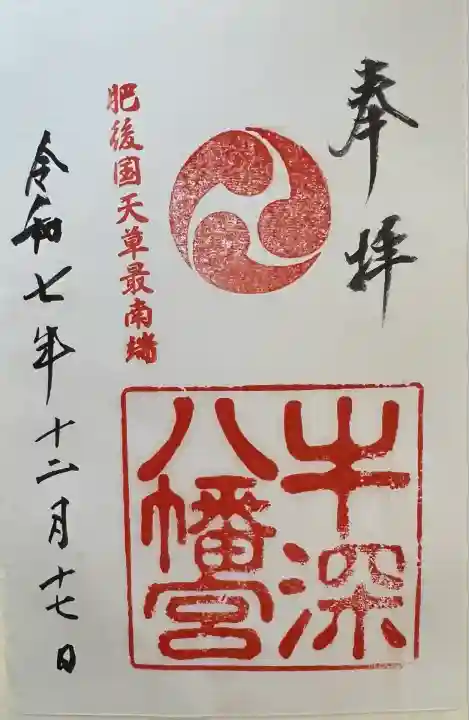 奉拝
肥後国天草最南端
牛深
八幡宮
令和七年十二月十七日